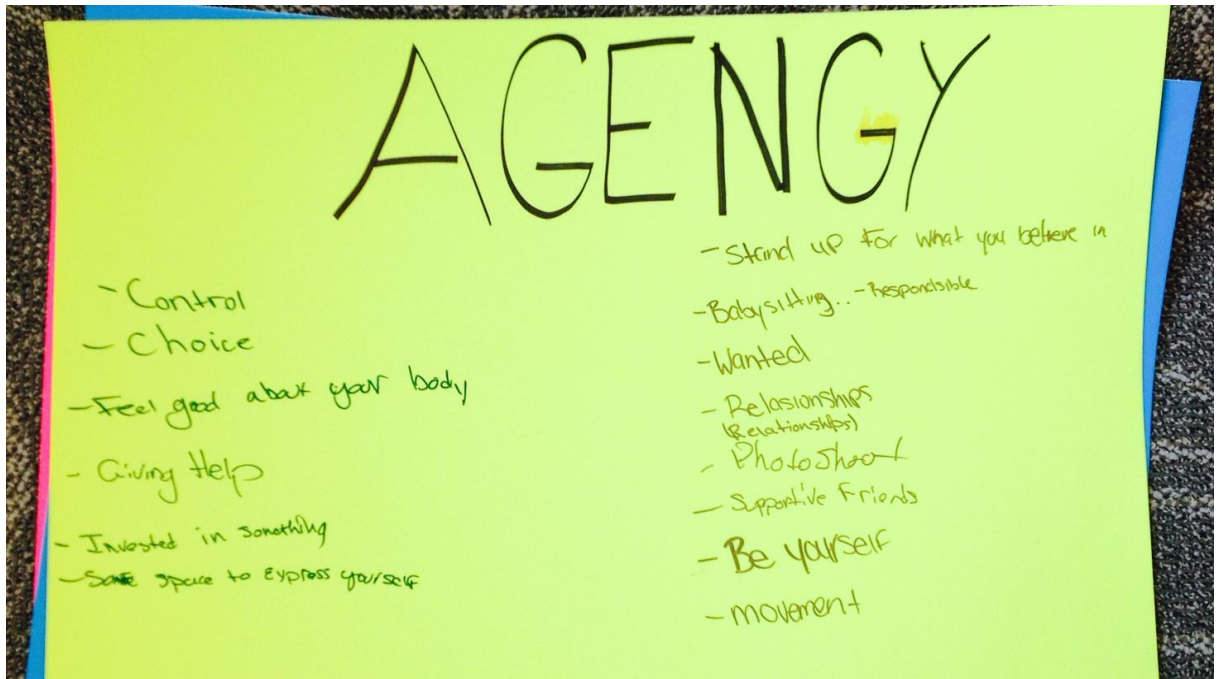 AGENGY
- Control
- Choice
- Feel good about your body
- Giving Help
- Invested in something
- Safe space to Express yourself
- Stand up For what you believe in
- Babysitting.. - Respondsible
- Wanted
- Relasionships
(Relationships)
- Photoshoot
- Supportive Friends
- Be yourself
- movement